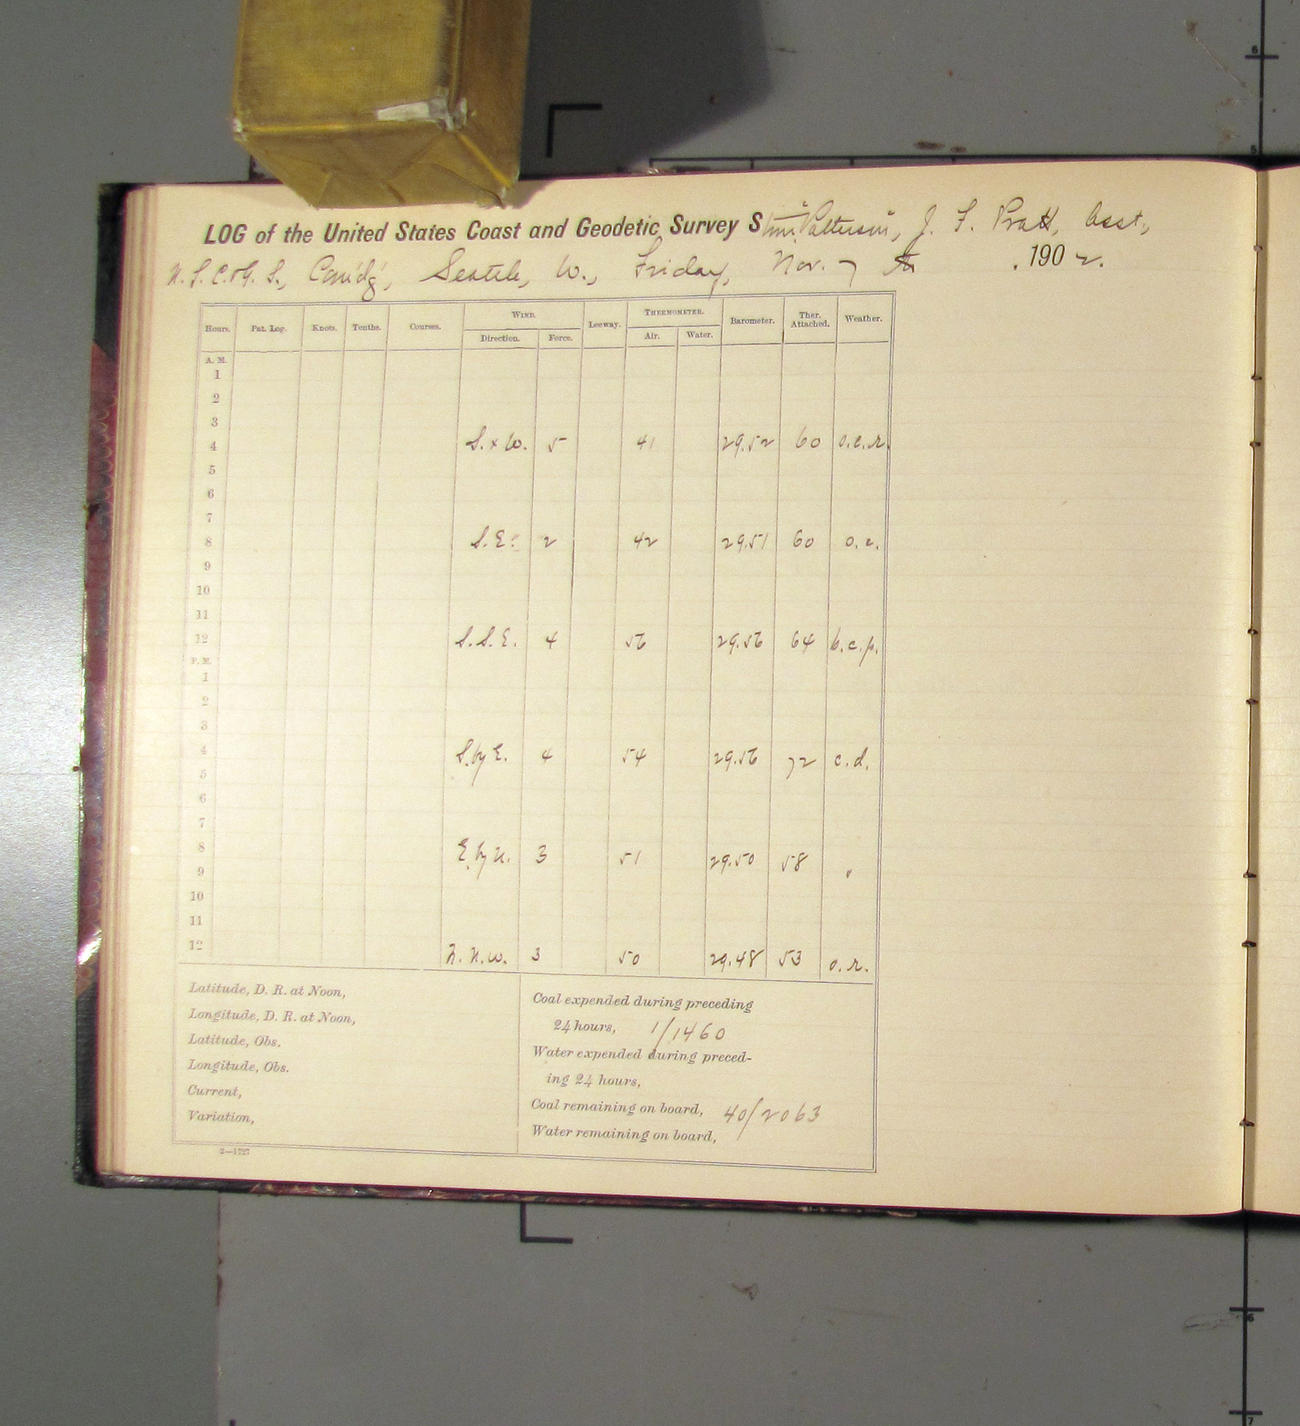 LOG of the United States Coast and Geodetic Survey Stmr. "Patterson", J. F. Pratt, Asst.,
U. S. C. & G. S., Com'd'g, Seattle, W., Friday, Nov. 7 th , 1902.
Hours. Pat. Log. Knots. Tenths. Courses. WIND. Leeway. THERMOMETER. Barometer. Ther. Attached. Weather.
Direction. Force. Air. Water.
A. M.
1
2
3
4 S. x W. 5 41 29.52 60 o.c.r.
5
6
7
8 S.E. 2 42 29.51 60 o.c.
9
10
11
12 S.S.E. 4 56 29.56 64 b.c.p.
P. M.
1
2
3
4 S. by E. 4 54 29.56 72 c.d.
5
6
7
8 E. by N. 3 51 29.50 58
9
10
11
12 N.N.W. 3 50 29.48 53 o.r.
Latitude, D. R. at Noon,
Longitude, D. R. at Noon,
Latitude, Obs.
Longitude, Obs.
Current,
Variation,
Coal expended during preceding
24 hours, 1/1460
Water expended during preced-
ing 24 hours,
Coal remaining on board, 40/2063
Water remaining on board,
2—1727
5
6
6
7